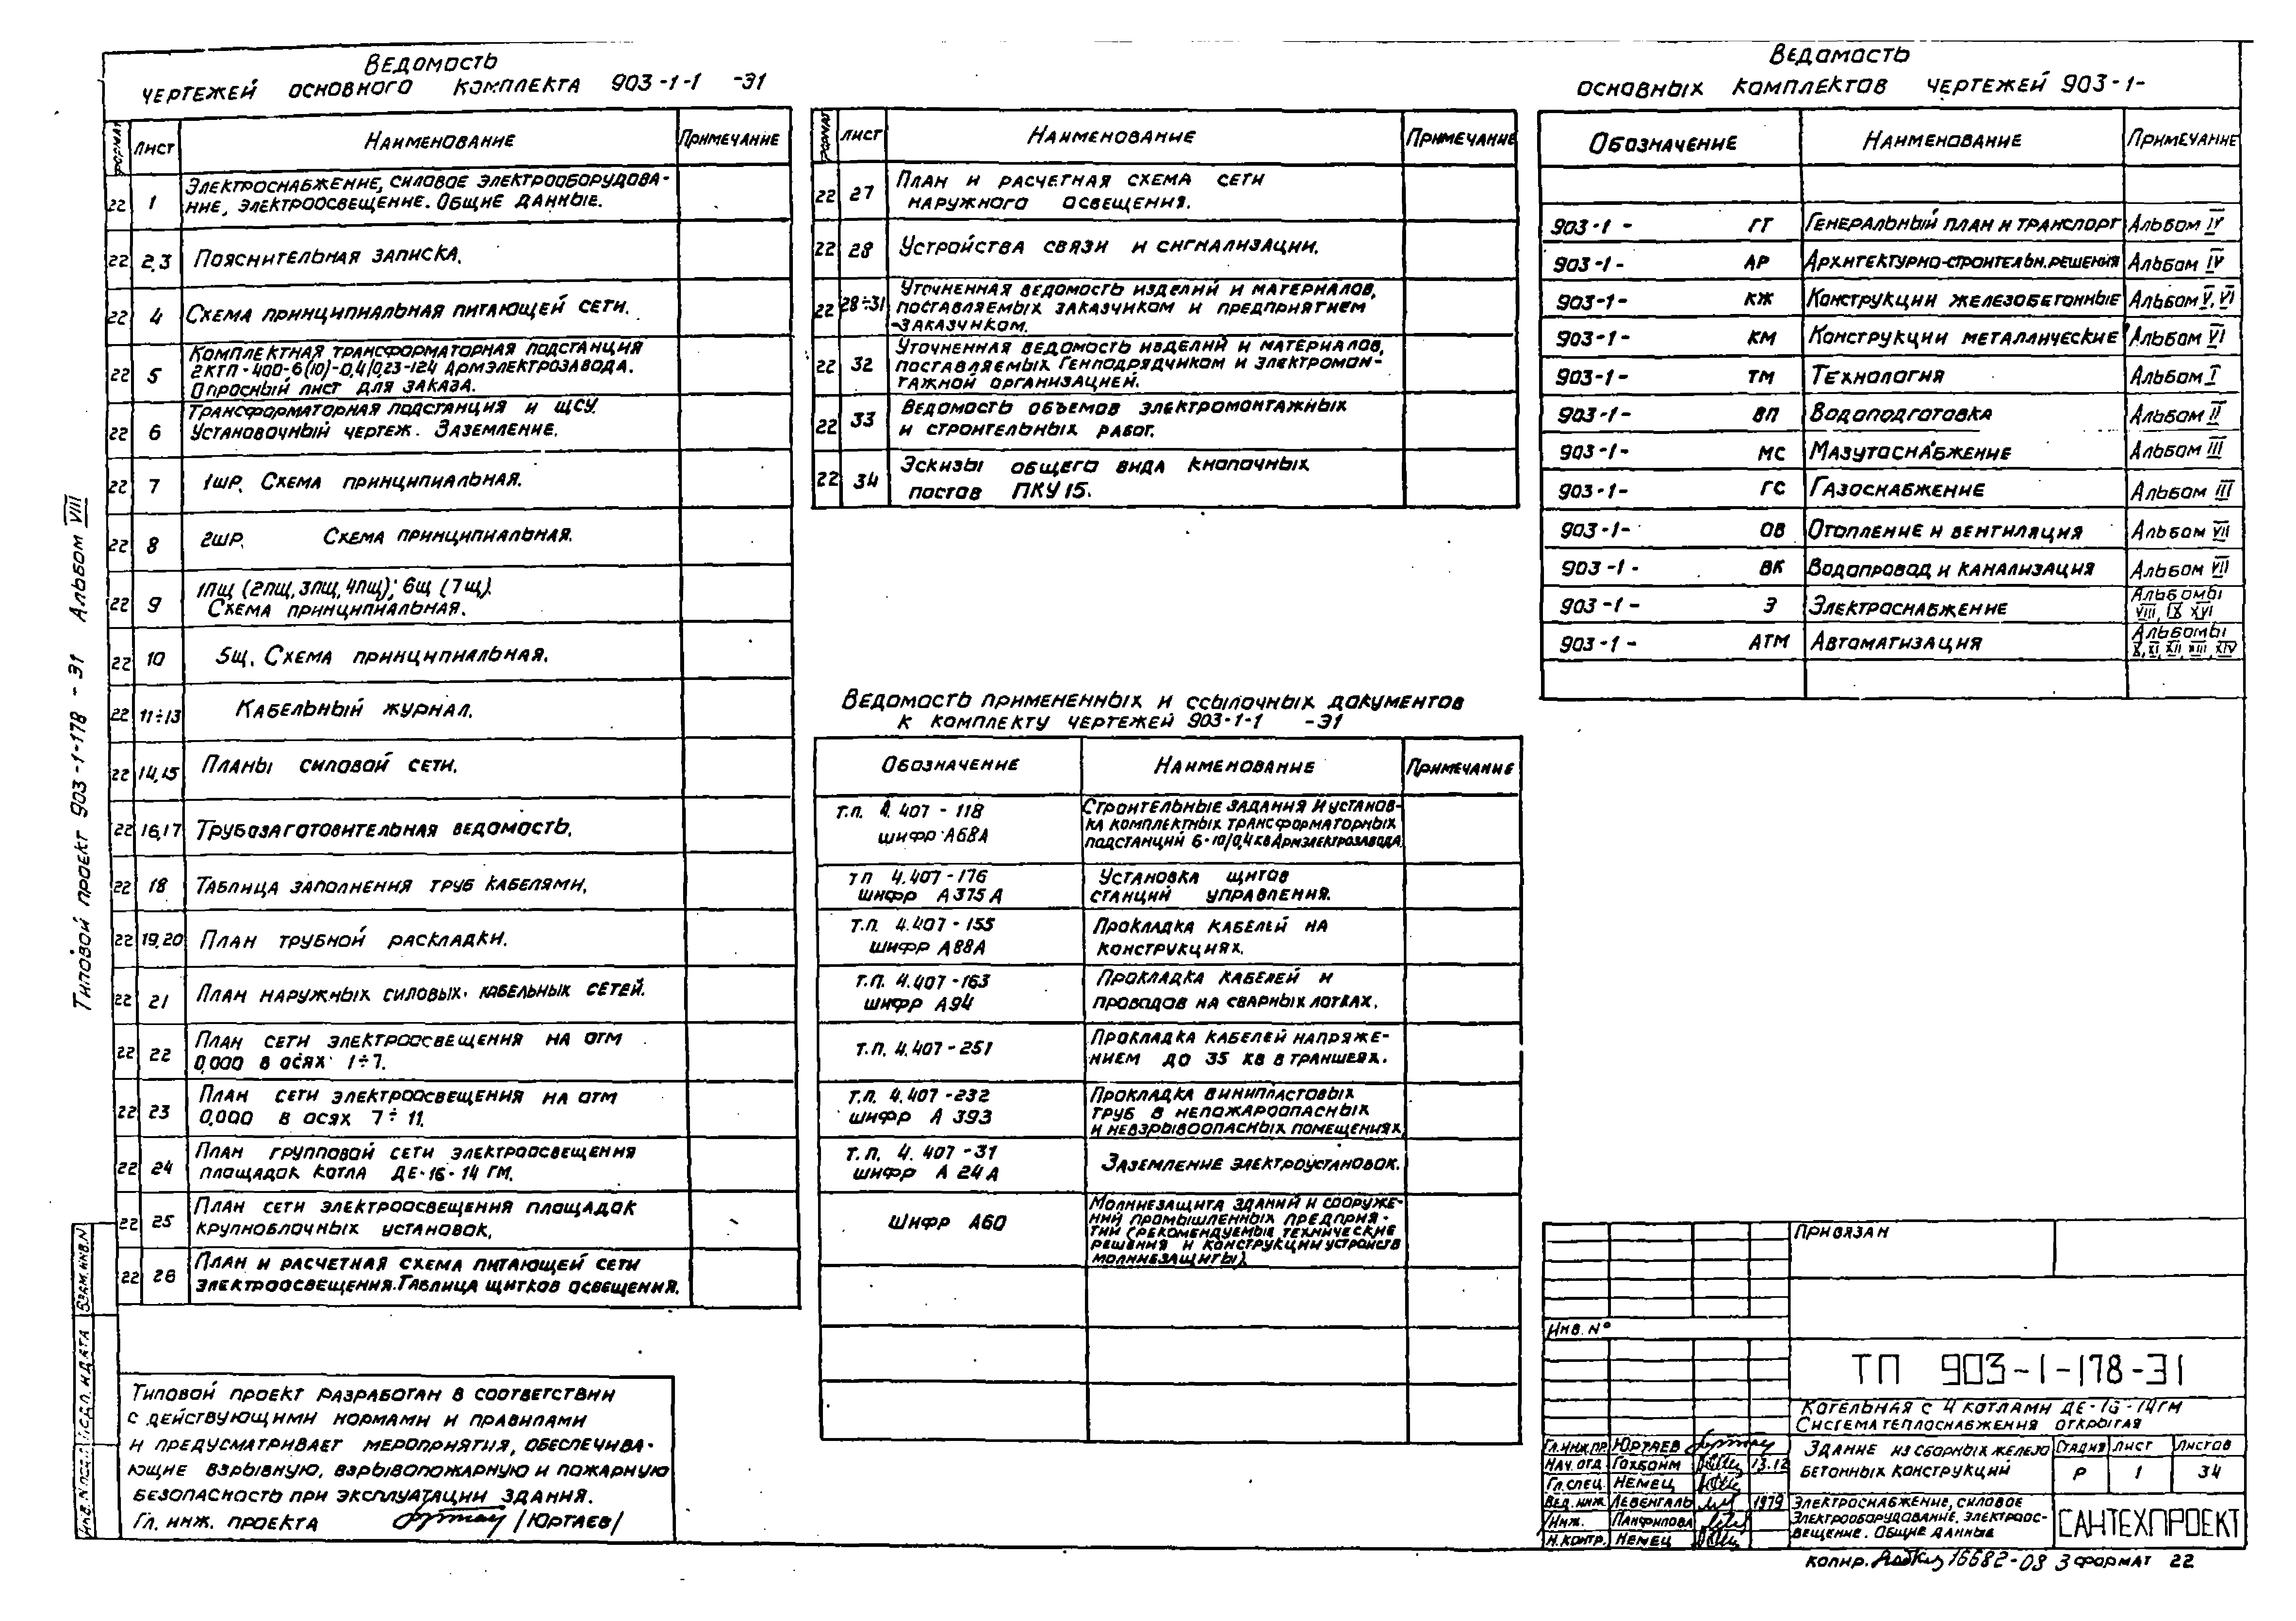 Ведомость
чертежей основного комплекта 903-1-1 -Э1
Формат Лист Наименование Примечание
22 1 Электроснабжение, силовое электрооборудова-
ние, электроосвещение. Общие данные.
22 2,3 Пояснительная записка.
22 4 Схема принципиальная питающей сети.
22 5 Комплектная трансформаторная подстанция
2КТП-400-6(10)-0,4/0,23-124 Армэлектрозавода.
Опросный лист для заказа.
22 6 Трансформаторная подстанция и ЩСУ.
Установочный чертеж. Заземление.
22 7 1ШР. Схема принципиальная.
22 8 2ШР. Схема принципиальная.
22 9 1ПЩ (2ПЩ, 3ПЩ, 4ПЩ); 6Щ (7Щ).
Схема принципиальная.
22 10 5Щ. Схема принципиальная.
22 11÷13 Кабельный журнал.
22 14,15 Планы силовой сети.
22 16,17 Трубозаготовительная ведомость.
22 18 Таблица заполнения труб кабелями.
22 19,20 План трубной раскладки.
22 21 План наружных силовых кабельных сетей.
22 22 План сети электроосвещения на отм
0,000 в осях 1÷7.
22 23 План сети электроосвещения на отм
0,000 в осях 7÷11.
22 24 План групповой сети электроосвещения
площадок котла ДЕ-16-14 ГМ.
22 25 План сети электроосвещения площадок
крупноблочных установок.
22 26 План и расчетная схема питающей сети
электроосвещения. Таблица щитков освещения.
Формат Лист Наименование Примечание
22 27 План и расчетная схема сети
наружного освещения.
22 28 Устройства связи и сигнализации.
22 28÷31 Уточненная ведомость изделий и материалов,
поставляемых заказчиком и предприятием
-заказчиком.
22 32 Уточненная ведомость изделий и материалов,
поставляемых Генподрядчиком и электромон-
тажной организацией.
22 33 Ведомость объемов электромонтажных
и строительных работ.
22 34 Эскизы общего вида кнопочных
постов ПКУ15.
Ведомость примененных и ссылочных документов
к комплекту чертежей 903-1-1 -Э1
Обозначение Наименование Примечание
Т.п. 4.407-118
шифр А68А
Строительные задания и установ-
ка комплектных трансформаторных
подстанций 6-10/0,4 кв Армэлектрозавода
тп 4.407-176
шифр А375А
Установка щитов
станций управления.
Т.п. 4.407-155
шифр А88А
Прокладка кабелей на
конструкциях.
Т.п. 4.407-163
шифр А94
Прокладка кабелей и
проводов на сварных лотках.
Т.п. 4.407-251
Прокладка кабелей напряже-
нием до 35 кв в траншеях.
Т.п. 4.407-232
шифр А 393
Прокладка винипластовых
труб в непожароопасных
и невзрывоопасных помещениях
Т.п. 4.407-31
шифр А 24А
Заземление электроустановок.
Шифр А60
Молниезащита зданий и сооруже-
ний промышленных предприя-
тий (рекомендуемые технические
решения и конструкции устройств
молниезащиты).
Ведомость
основных комплектов чертежей 903-1-
Обозначение Наименование Примечание
903-1- ГТ Генеральный план и транспорт Альбом IV
903-1- АР Архитектурно-строительн. решения Альбом IV
903-1- КЖ Конструкции железобетонные Альбом V, VI
903-1- КМ Конструкции металлические Альбом VI
903-1- ТМ Технология Альбом I
903-1- ВП Водоподготовка Альбом II
903-1- МС Мазутоснабжение Альбом III
903-1- ГС Газоснабжение Альбом III
903-1- ОВ Отопление и вентиляция Альбом VII
903-1- ВК Водопровод и канализация Альбом VII
903-1- Э Электроснабжение Альбомы
VIII, IX XVI
903-1- АТМ Автоматизация Альбомы
X, XI, XII, XIII, XIV
Типовой проект 903-1-178-Э1 Альбом VIII
Взам. инв. N
Подп. и дата
Инв. N подл.
Типовой проект разработан в соответствии
с действующими нормами и правилами
и предусматривает мероприятия, обеспечива-
ющие взрывную, взрывопожарную и пожарную
безопасность при эксплуатации здания.
Гл. инж. проекта /Юртаев/
Привязан
Инв. N°
ТП 903-1-178-Э1
Котельная с 4 котлами ДЕ-16-14ГМ
Система теплоснабжения открытая
Гл. инж. пр. Юртаев
Нач. отд. Гохбойм 13.12
Гл. спец. Немец
Вед. инж. Левенгаль 1979
Инж. Панфилова
Н. контр. Немец
Здание из сборных железо
бетонных конструкций
Стадия Лист Листов
Р 1 34
Электроснабжение, силовое
электрооборудование, электроос-
вещение. Общие данные
САНТЕХПРОЕКТ
Копир. 16682-08 3 формат 22